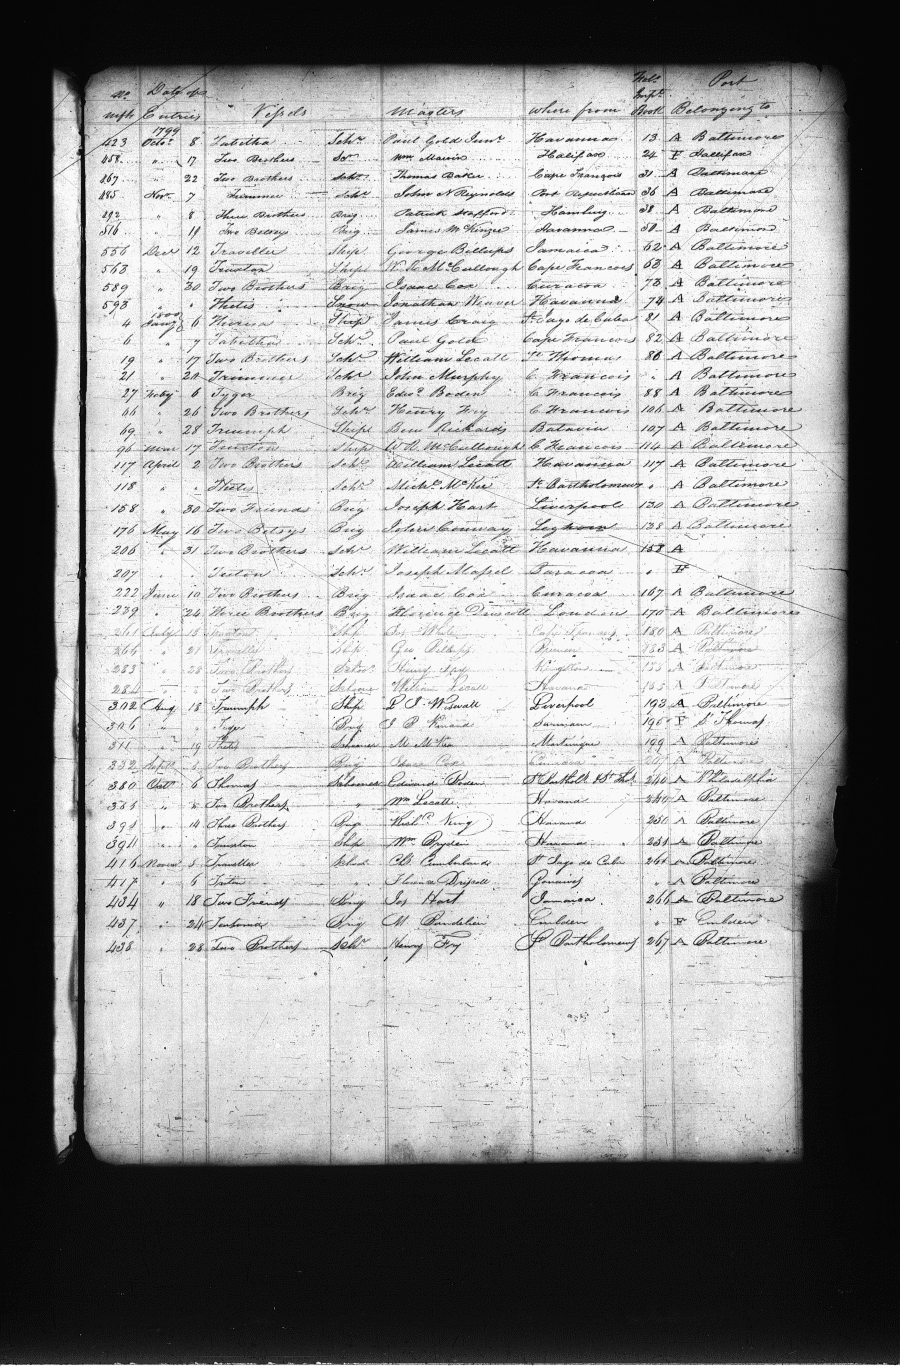 No. Date of Fol. Port
Mfts Entries Vessels Masters where from Impt. Book Belonging to
1799
423 Octor. 8 Tabitha Schr. Paul Gold Junr. Havanna 13 A Baltimore
458 " 17 Two Brothers Wm Halifax 24 F Hallifax
467 " 22 Two Brothers Schr. Thomas Baker Cape François 31 A Baltimore
485 Novr. 7 Schr. John N Reynolds Port Republican 36 A Baltimore
492 " 8 Three Brothers Brig Patrick Stafford Hamburg 38 A Baltimore
516 " 19 Two Betseys Brig James McKinzee Havanna 50 A Baltimore
556 Decr 12 Traveller Ship George Billups Jamaica 62 A Baltimore
563 " 19 Truxton Ship McCullough Cape Francois 63 A Baltimore
589 " 30 Two Brothers Brig Isaac Cox Curacoa 73 A Baltimore
593 " " Thetis Snow Jonathan Weaver Havanna 74 A Baltimore
1800
4 Jany 6 Ship James Craig St Jago de Cuba 81 A Baltimore
6 " 7 Tabitha Schr. Paul Gold Cape Francois 82 A Baltimore
19 " 17 Two Brothers Schr. William Lecatt St Thomas 86 A Baltimore
21 " 20 Trimmer Schr John Murphy C Francois " A Baltimore
27 Feby 6 Tyger Brig Edwd. Boden C Francois 88 A Baltimore
66 " 26 Two Brothers Schr. Henry Fry C Francois 106 A Baltimore
69 " 28 Triumph Ship Ben Rickards Batavia 107 A Baltimore
96 Mar 17 Truxton Ship McCullough C Francois 114 A Baltimore
117 April 2 Two Brothers Schr. William Lecatt Havanna 117 A Baltimore
118 " " Thetis Schr. Michl. McKee St. Bartholomew " A Baltimore
158 " 30 Two Friends Brig Joseph Hart Liverpool 130 A Baltimore
176 May 16 Two Betsys Brig John Conway Leghorn 138 A Baltimore
206 " 31 Two Brothers Schr William Lecatt Havanna 158 A
207 " " Triton Schr. Joseph Massel " F
222 June 10 Two Brothers Brig Isaac Cox Curacoa 167 A Baltimore
229 " 24 Three Brothers Brig Florence Driscoll London 170 A Baltimore
261 July 15 Truxton Ship White Cape Francois 180 A Baltimore
266 " 21 Traveller Ship Geo Billups Bremen 183 A Baltimore
283 " 28 Two Brothers Schr. Henry Fry Kingston A Baltimore
284 " " Two Brothers Schooner William Lecatt Havana A Baltimore
302 Aug 18 Triumph Ship Wiswall Liverpool 193 A Baltimore
306 " " Brig J P Surinam 196 F St Thomas
311 " 19 Thetis Schooner M McKee Martinique 199 A Baltimore
332 Septr Two Brothers Brig Isaac Cox Curacoa A Baltimore
380 Octr 6 Thomas Schooner Edward Boden 240 A Philadelphia
" Two Brothers " Wm Lecatt Havana 240 A Baltimore
" 14 Three Brothers Brig King Havana 250 A Baltimore
394 " " Truxton Ship Wm Bryden Havana 251 A Baltimore
416 Novem Traveller Cumberland St Jago de Cuba 261 A Baltimore
417 " 6 Triton " Florence Driscoll " A Baltimore
434 " 18 Two Friends Brig Jos Hart Jamaica 266 A Baltimore
437 " 24 Brig M. Embden " F Embden
438 " 28 Two Brothers Schr Henry Fry St Bartholomews 267 A Baltimore